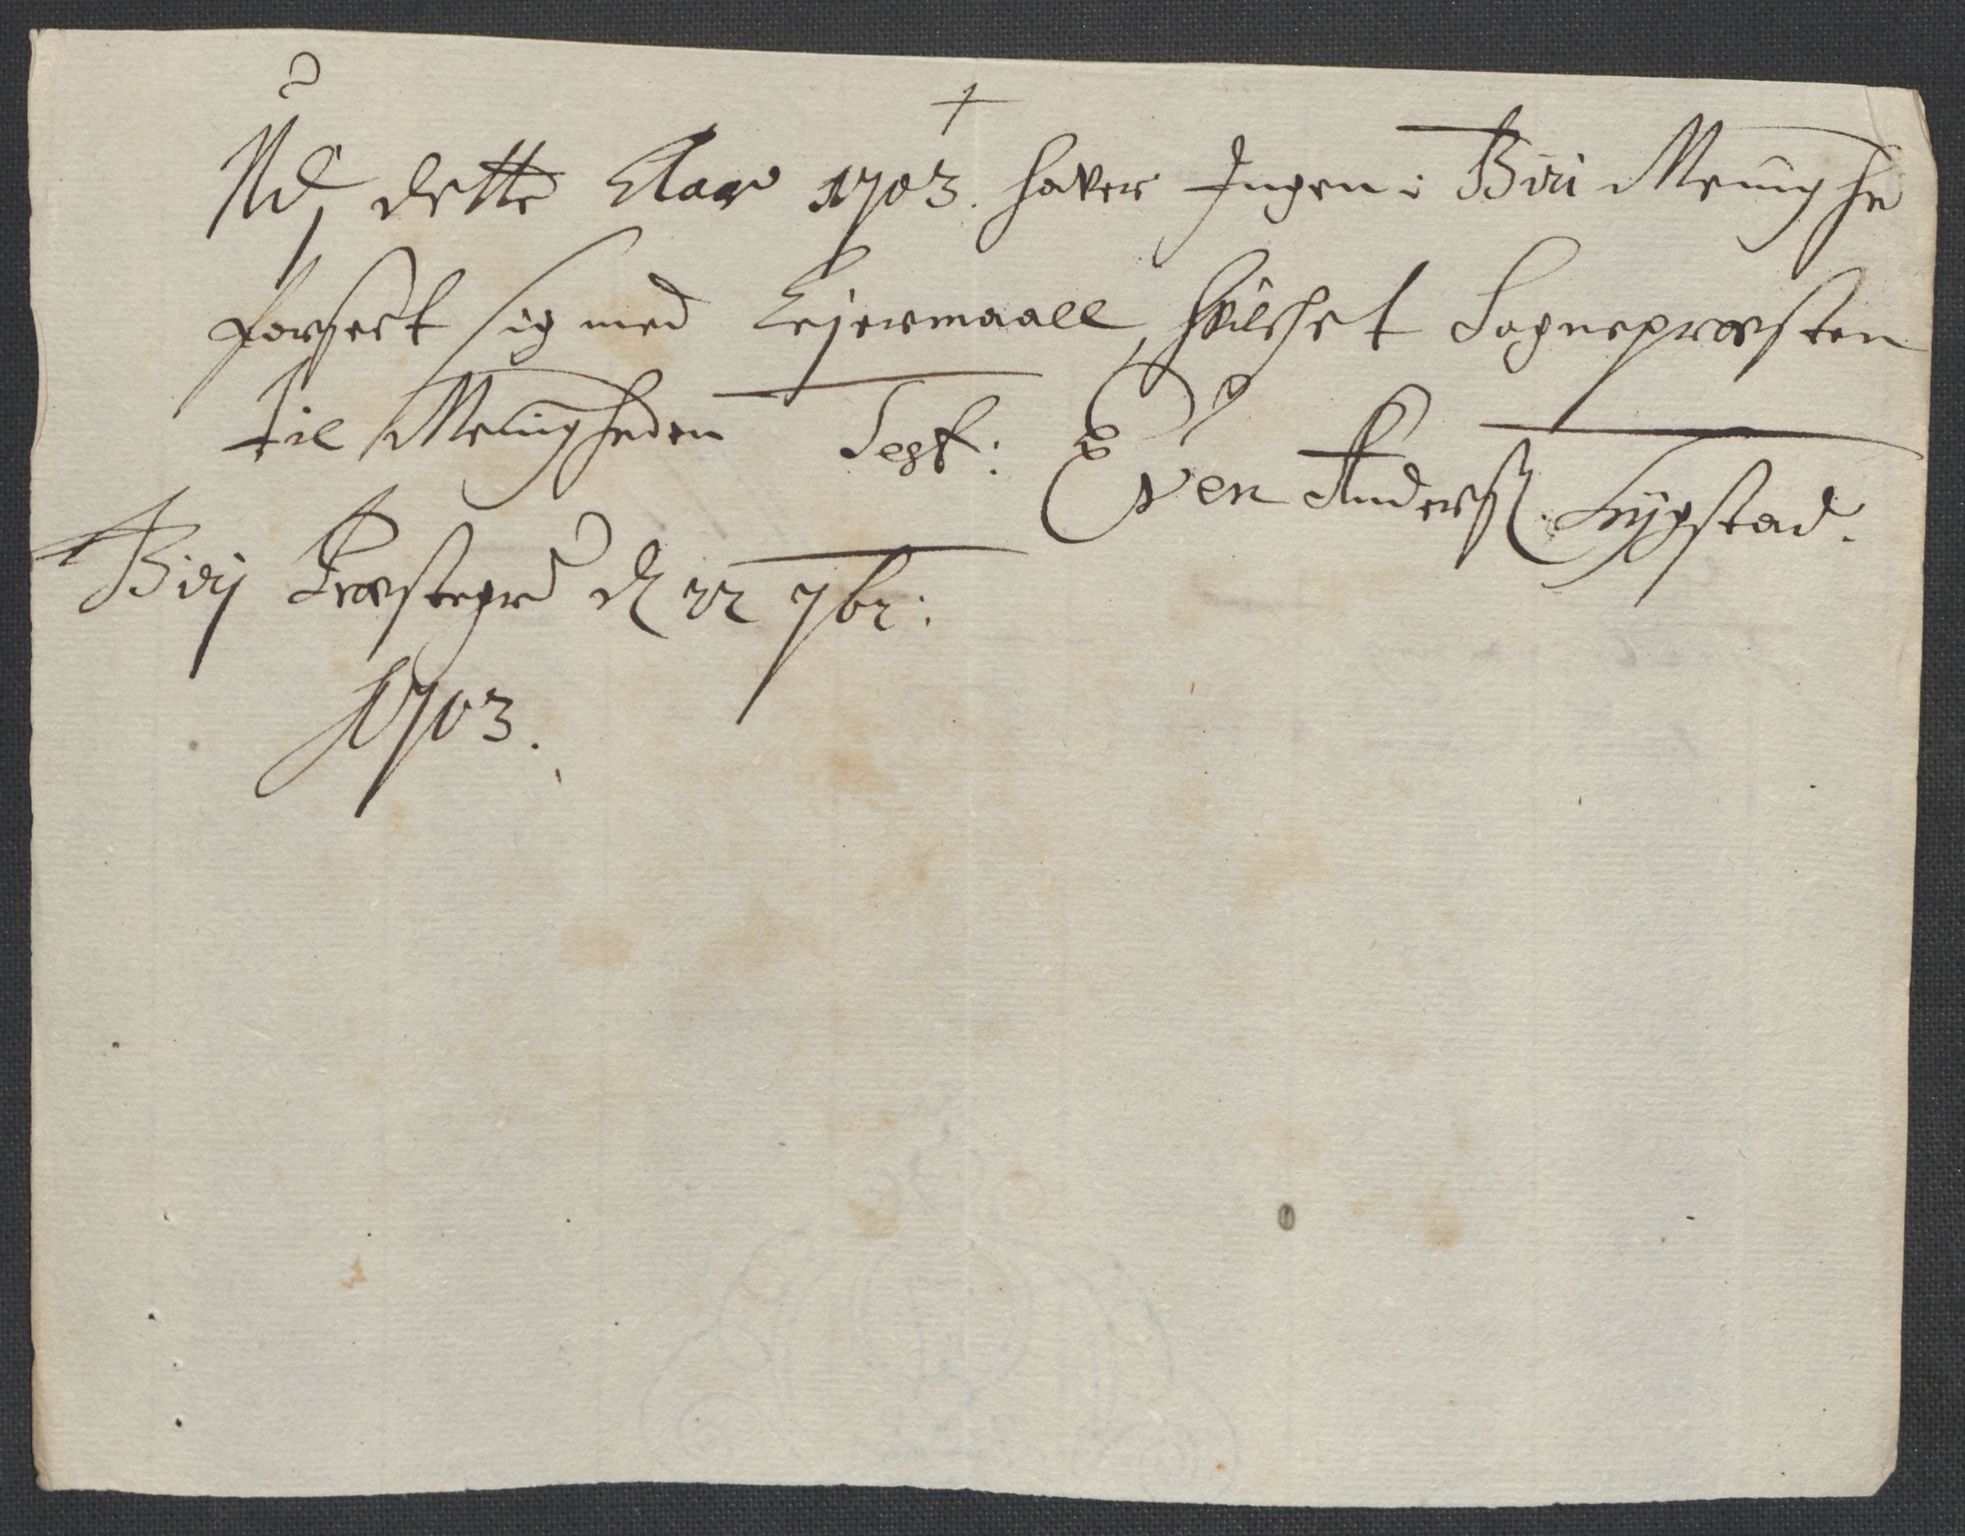 Ud dette Aar 1703. haver Ingen i Biri Menighe
forseet sig med Lejermaall, hvilchet Sognepræsten
til Menigheden Test: Even Anderß: Lygstad.
Birj Præstegrd d 22 7br:
1703.